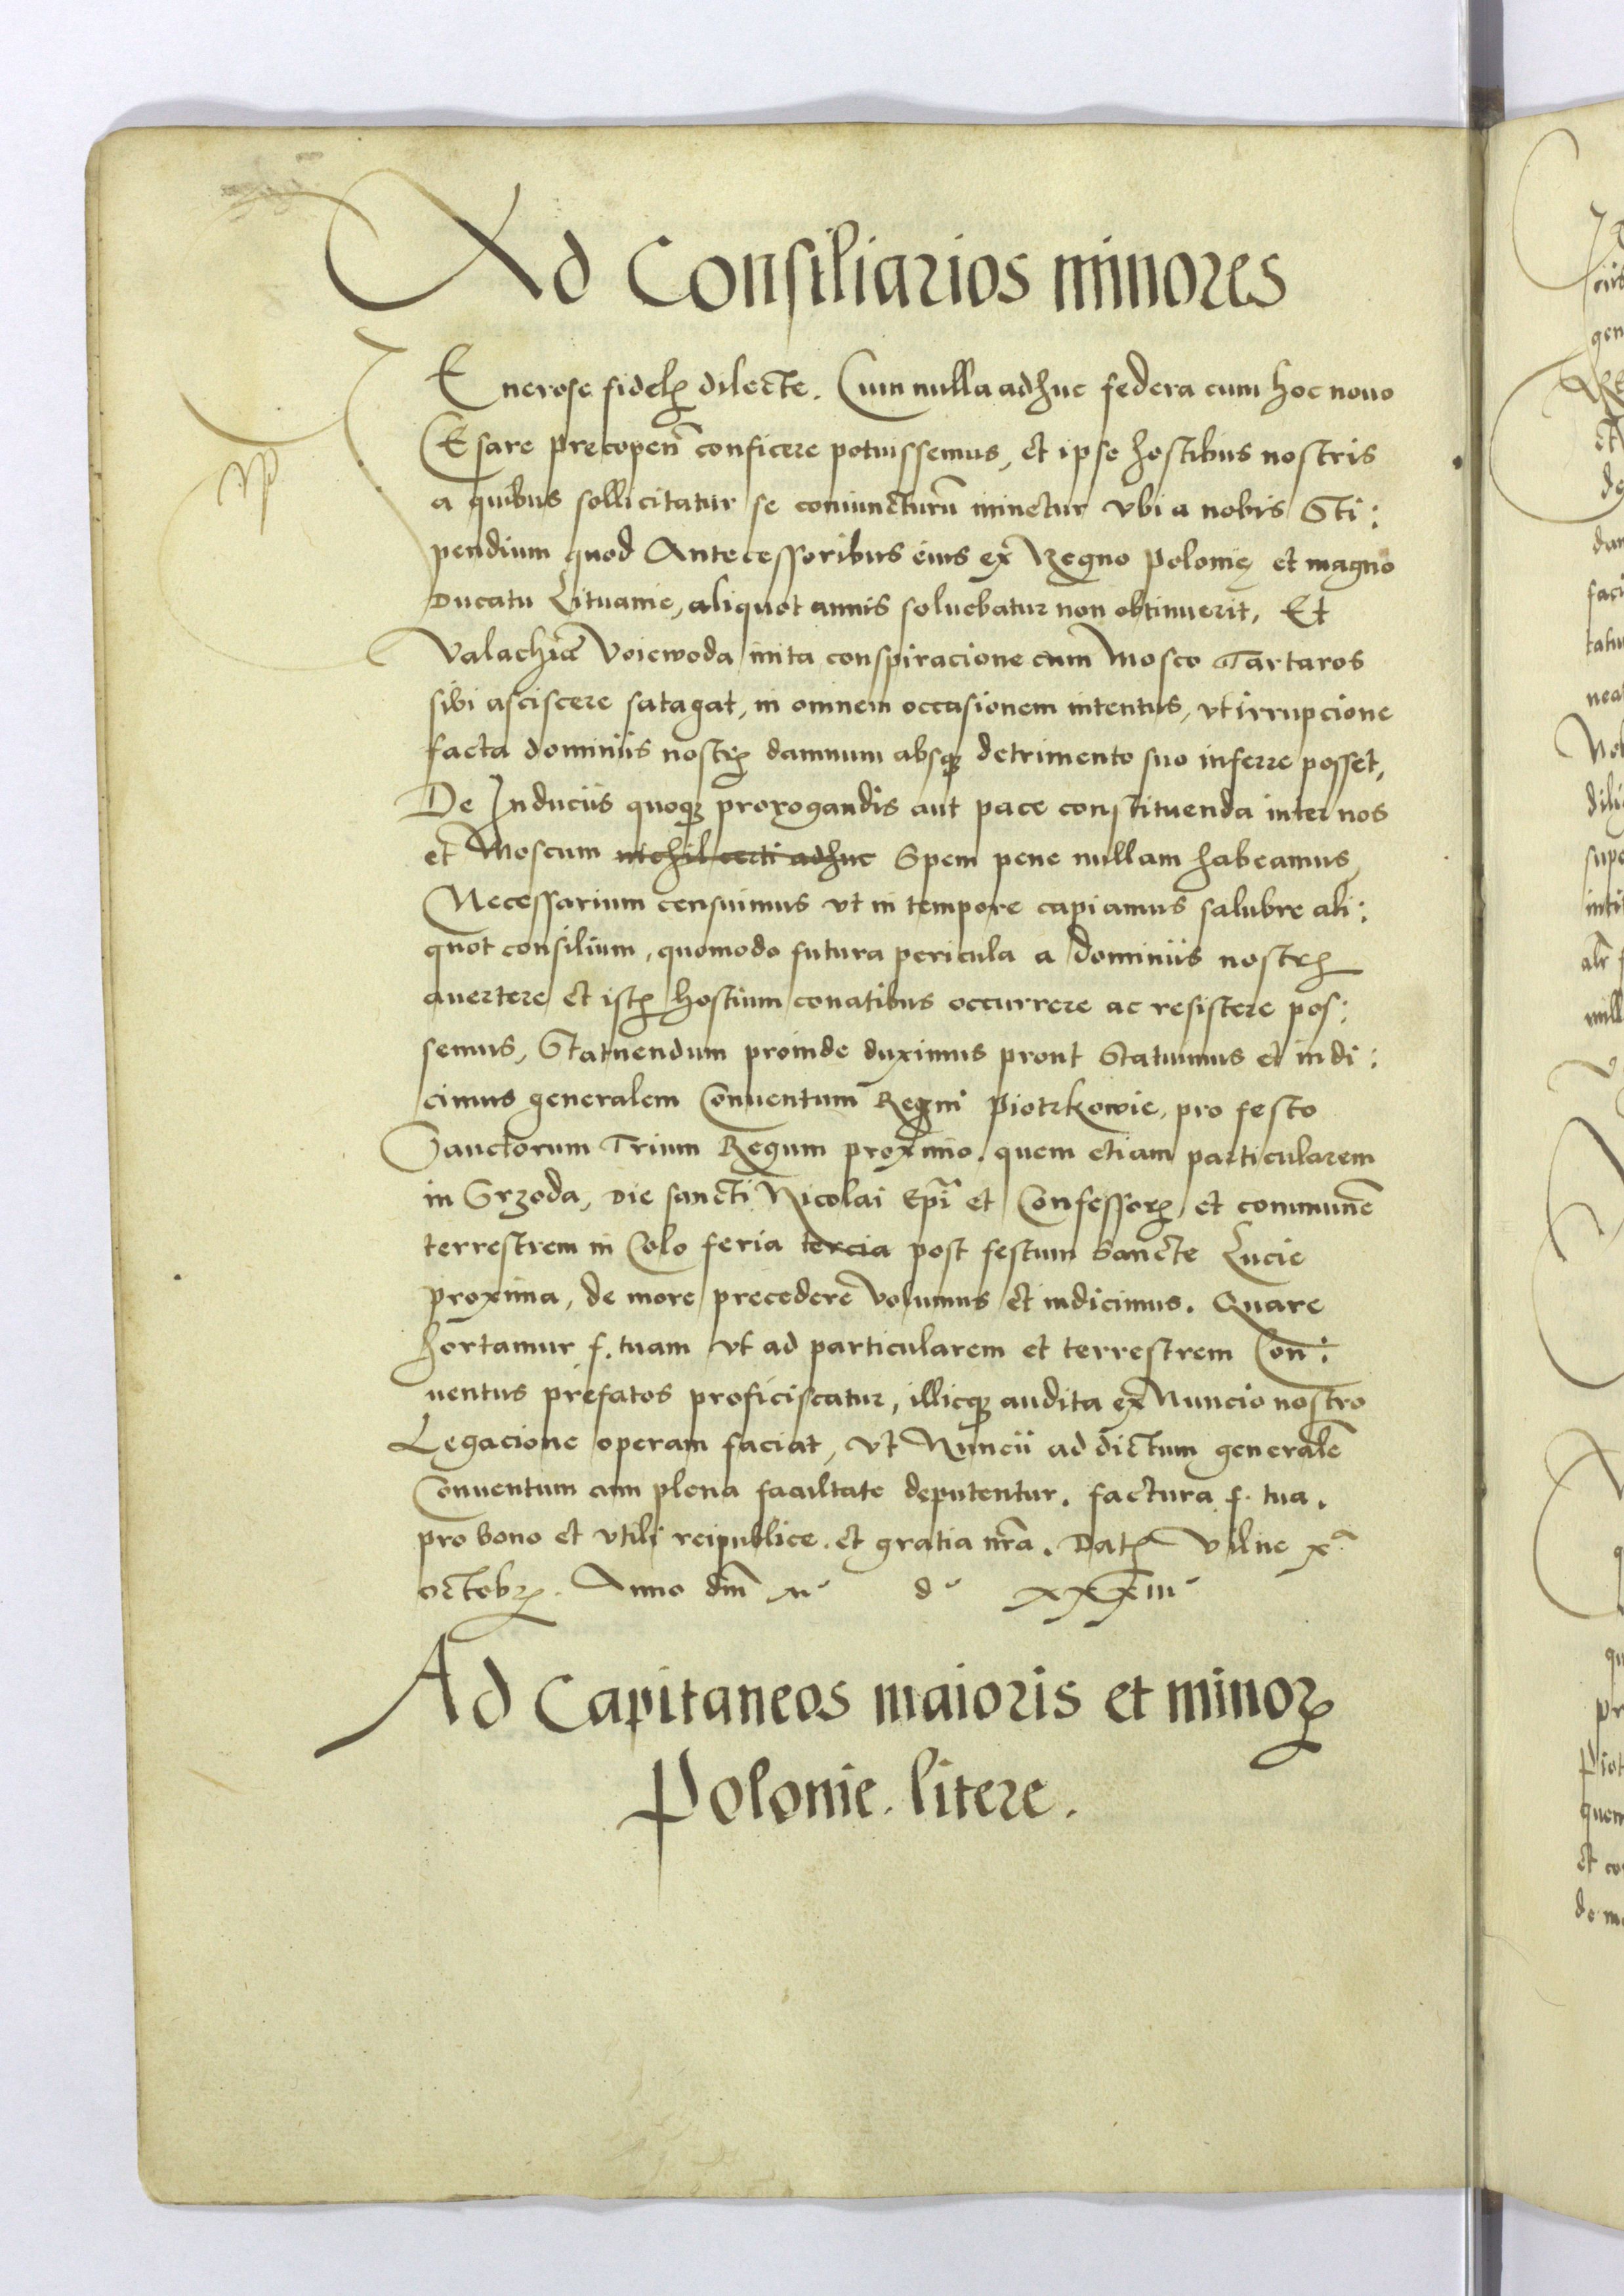 Ad Consiliarios minores
GEnerose fidelꝭ dilecte. Cum nulla adhuc federa cum hoc nouo
CEsare precopen̄ conficere potuissemus, et ipse hostibus nostris
a quibus sollicitatur se coniuncturū minetur vbi a nobis Sti:
pendium quod Antecessoribus eius ex Regno Polonię et magno
Ducatu Lituanie, aliquot annis soluebatur non obtinuerit. Et
Valachiē Voiewoda inita conspiracione cum Mosco Tartaros
sibi asciscere satagat, in omnem occasionem intentus, vt irrupcione
facta dominiis nostrꝭ damnum absqꝫ detrimento suo inferre posset,
De Induciis quoqꝫ prorogandis aut pace constituenda inter nos
et Moscum nichil certi adhuc Spem pene nullam habeamus,
Necessarium censuimus vt in tempore capiamus salubre ali:
quot consilium, quomodo futura pericula a dominiis nostrꝭ
auertere et istꝭ hostium conatibus occurrere ac resistere pos:
semus, Statuendum proinde duximus prout Statuimus et indi:
cimus generalem Conuentum Regni Piotrkowie, pro festo
Sanctorum Trium Regum proximo. quem etiam particularem
in Srzoda, die sancti Nicolai Ep̄i et Confessorꝭ et communē
terrestrem in Colo feria tercia post festum Sancte Lucie
proxima, de more precedere volumus et indicimus. Quare
hortamur f. tuam vt ad particularem et terrestrem Con:
uentus prefatos proficiscatur, illicqꝫ audita ex Nuncio nostro
Legacione operam faciat, vt Nuncii ad dictum generalē
Conuentum cum plena facultate deputentur. factura f. tua.
pro bono et vtili reipublice. et gratia nr̄a. Datꝭ Vilne xª
octobrꝭ. Anno dn̄i Mº dº xxxiiiº
Ad Capitaneos maioris et minorꝭ
Polonie. litere.